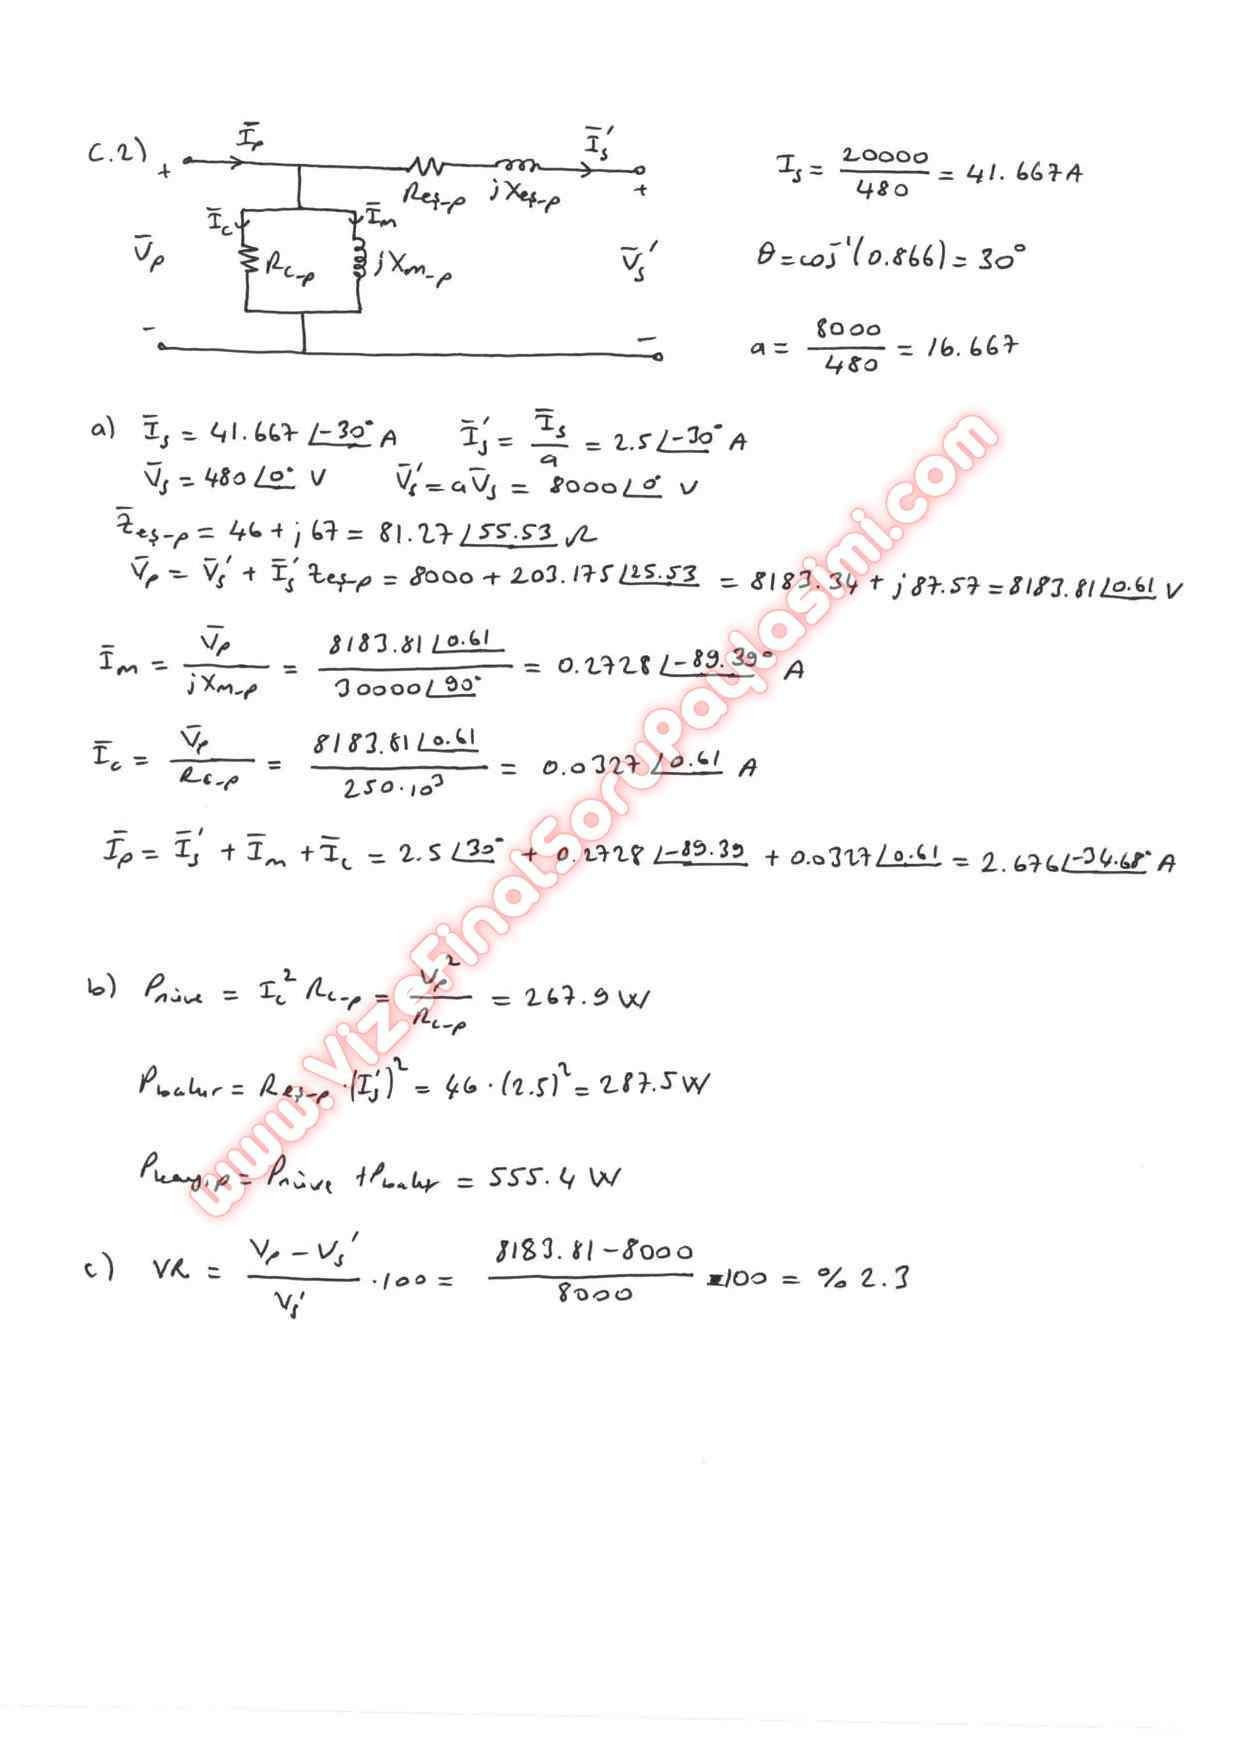 C.2)
+ Īp Īs' +
Req-p jXeş-p
Īc Īm
V̄p Rc-p jXm-p V̄s'
- -
Is = 20000/480 = 41.667 A
θ = cos⁻¹(0.866) = 30°
a = 8000/480 = 16.667
a) Īs = 41.667 ∠-30° A Īs' = Īs/a = 2.5 ∠-30° A
V̄s = 480 ∠0° V V̄s' = aV̄s = 8000 ∠0° V
Z̄eş-p = 46 + j67 = 81.27 ∠55.53 Ω
V̄p = V̄s' + Īs' Zeş-p = 8000 + 203.175 ∠25.53 = 8183.34 + j87.57 = 8183.81 ∠0.61 V
Īm = V̄p/jXm-p = 8183.81 ∠0.61/30000 ∠90° = 0.2728 ∠-89.39° A
Īc = V̄p/Rc-p = 8183.81 ∠0.61/250·10³ = 0.0327 ∠0.61 A
Īp = Īs' + Īm + Īc = 2.5 ∠30° + 0.2728 ∠-89.39 + 0.0327 ∠0.61 = 2.676 ∠-34.68° A
b) Pnüve = Ic² Rc-p = Vp²/Rc-p = 267.9 W
Pbakır = Reş-p · (Is')² = 46 · (2.5)² = 287.5 W
Pkayıp = Pnüve + Pbakır = 555.4 W
c) VR = Vp - Vs'/Vs' · 100 = 8183.81 - 8000/8000 · 100 = % 2.3
www.VizeFinalSoruPaylasimi.com